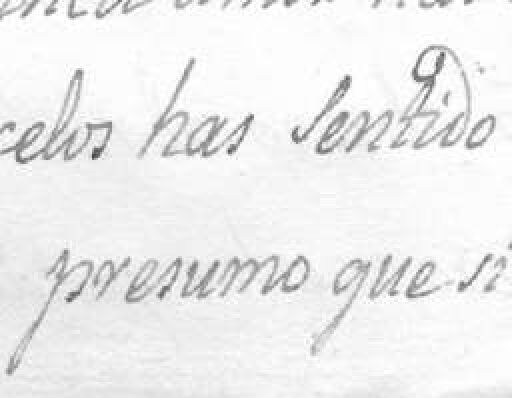 celos has sentido
presumo que si